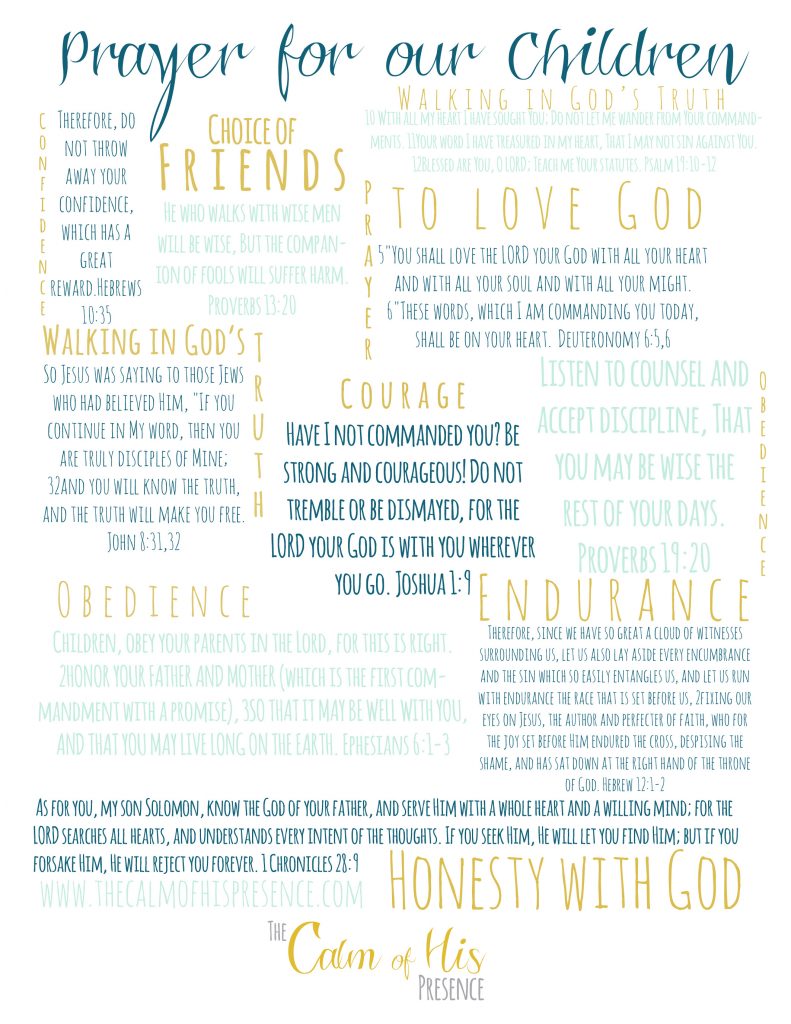 Prayer for our Children
Walking in God's Truth
10 With all my heart I have sought You; Do not let me wander from Your command-
ments. 11Your word I have treasured in my heart, That I may not sin against You.
12Blessed are You, O LORD; Teach me Your statutes. Psalm 19:10-12
Confidence
Therefore, do
not throw
away your
confidence,
which has a
great
reward.Hebrews
10:35
Choice of
Friends
He who walks with wise men
will be wise, But the compan-
ion of fools will suffer harm.
Proverbs 13:20
Prayer
to love God
5"You shall love the LORD your God with all your heart
and with all your soul and with all your might.
6"These words, which I am commanding you today,
shall be on your heart. Deuteronomy 6:5,6
Walking in God's
Truth
So Jesus was saying to those Jews
who had believed Him, "If you
continue in My word, then you
are truly disciples of Mine;
32and you will know the truth,
and the truth will make you free.
John 8:31,32
Courage
Have I not commanded you? Be
strong and courageous! Do not
tremble or be dismayed, for the
LORD your God is with you wherever
you go. Joshua 1:9
Listen to counsel and
accept discipline, That
you may be wise the
rest of your days.
Proverbs 19:20
Obedience
Obedience
Children, obey your parents in the Lord, for this is right.
2Honor your father and mother (which is the first com-
mandment with a promise), 3so that it may be well with you,
and that you may live long on the earth. Ephesians 6:1-3
Endurance
Therefore, since we have so great a cloud of witnesses
surrounding us, let us also lay aside every encumbrance
and the sin which so easily entangles us, and let us run
with endurance the race that is set before us, 2fixing our
eyes on Jesus, the author and perfecter of faith, who for
the joy set before Him endured the cross, despising the
shame, and has sat down at the right hand of the throne
of God. Hebrew 12:1-2
As for you, my son Solomon, know the God of your father, and serve Him with a whole heart and a willing mind; for the
LORD searches all hearts, and understands every intent of the thoughts. If you seek Him, He will let you find Him; but if you
forsake Him, He will reject you forever. 1 Chronicles 28:9
Honesty with God
www.thecalmofhispresence.com
The
Calm of His
Presence